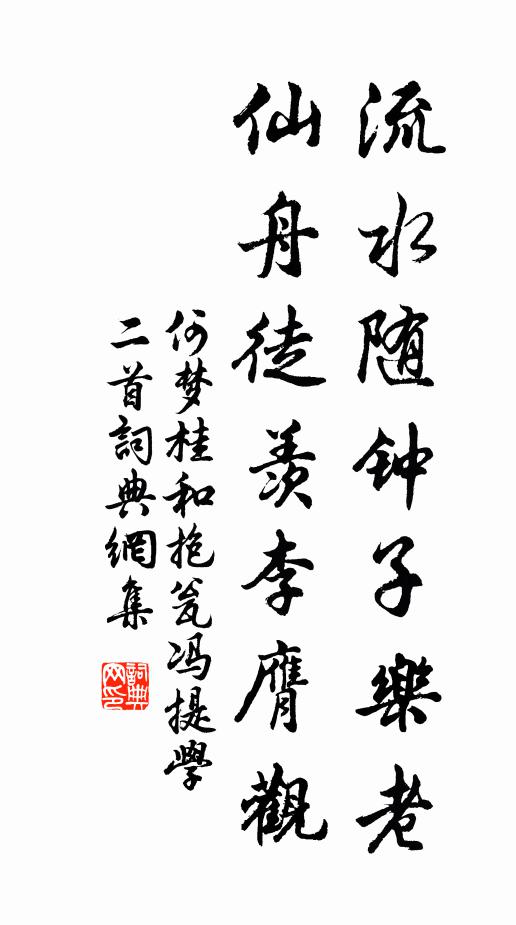 流水随钟子樂老
仙舟徒羨李膺觀
何梦桂和抱瓮冯提學
二首詞典網集
詞典網印